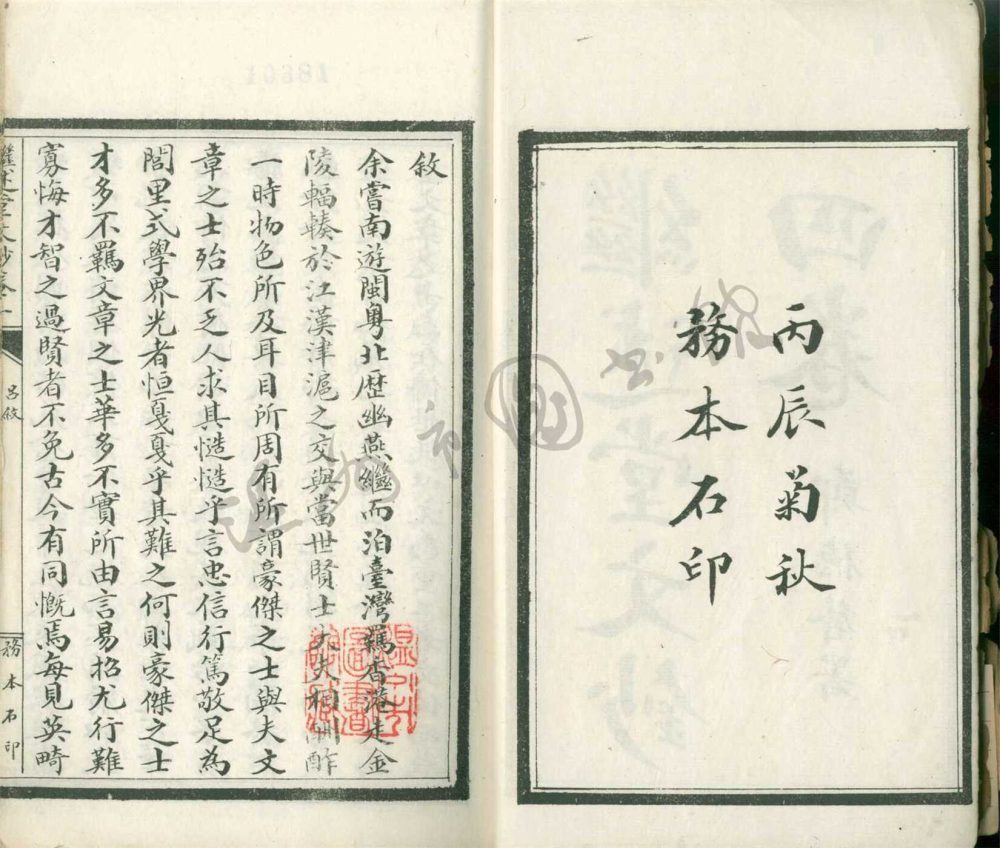 丙辰菊秋
務本石印
敘
余嘗南遊閩粵北歷幽燕繼而泊臺灣羈香港走金
陵輻輳於江漢津滬之交與當世賢士大夫相酬酢
一時物色所及耳目所周有所謂豪傑之士與夫文
章之士殆不乏人求其慥慥乎言忠信行篤敬足為
閭里式學界光者恒戛戛乎其難之何則豪傑之士
才多不羈文章之士華多不實所由言易招尤行難
寡悔才智之過賢者不免古今有同慨焉每見英畸
繼述堂文鈔卷一
呂敘
務本石印
10381
溫州市圖書館